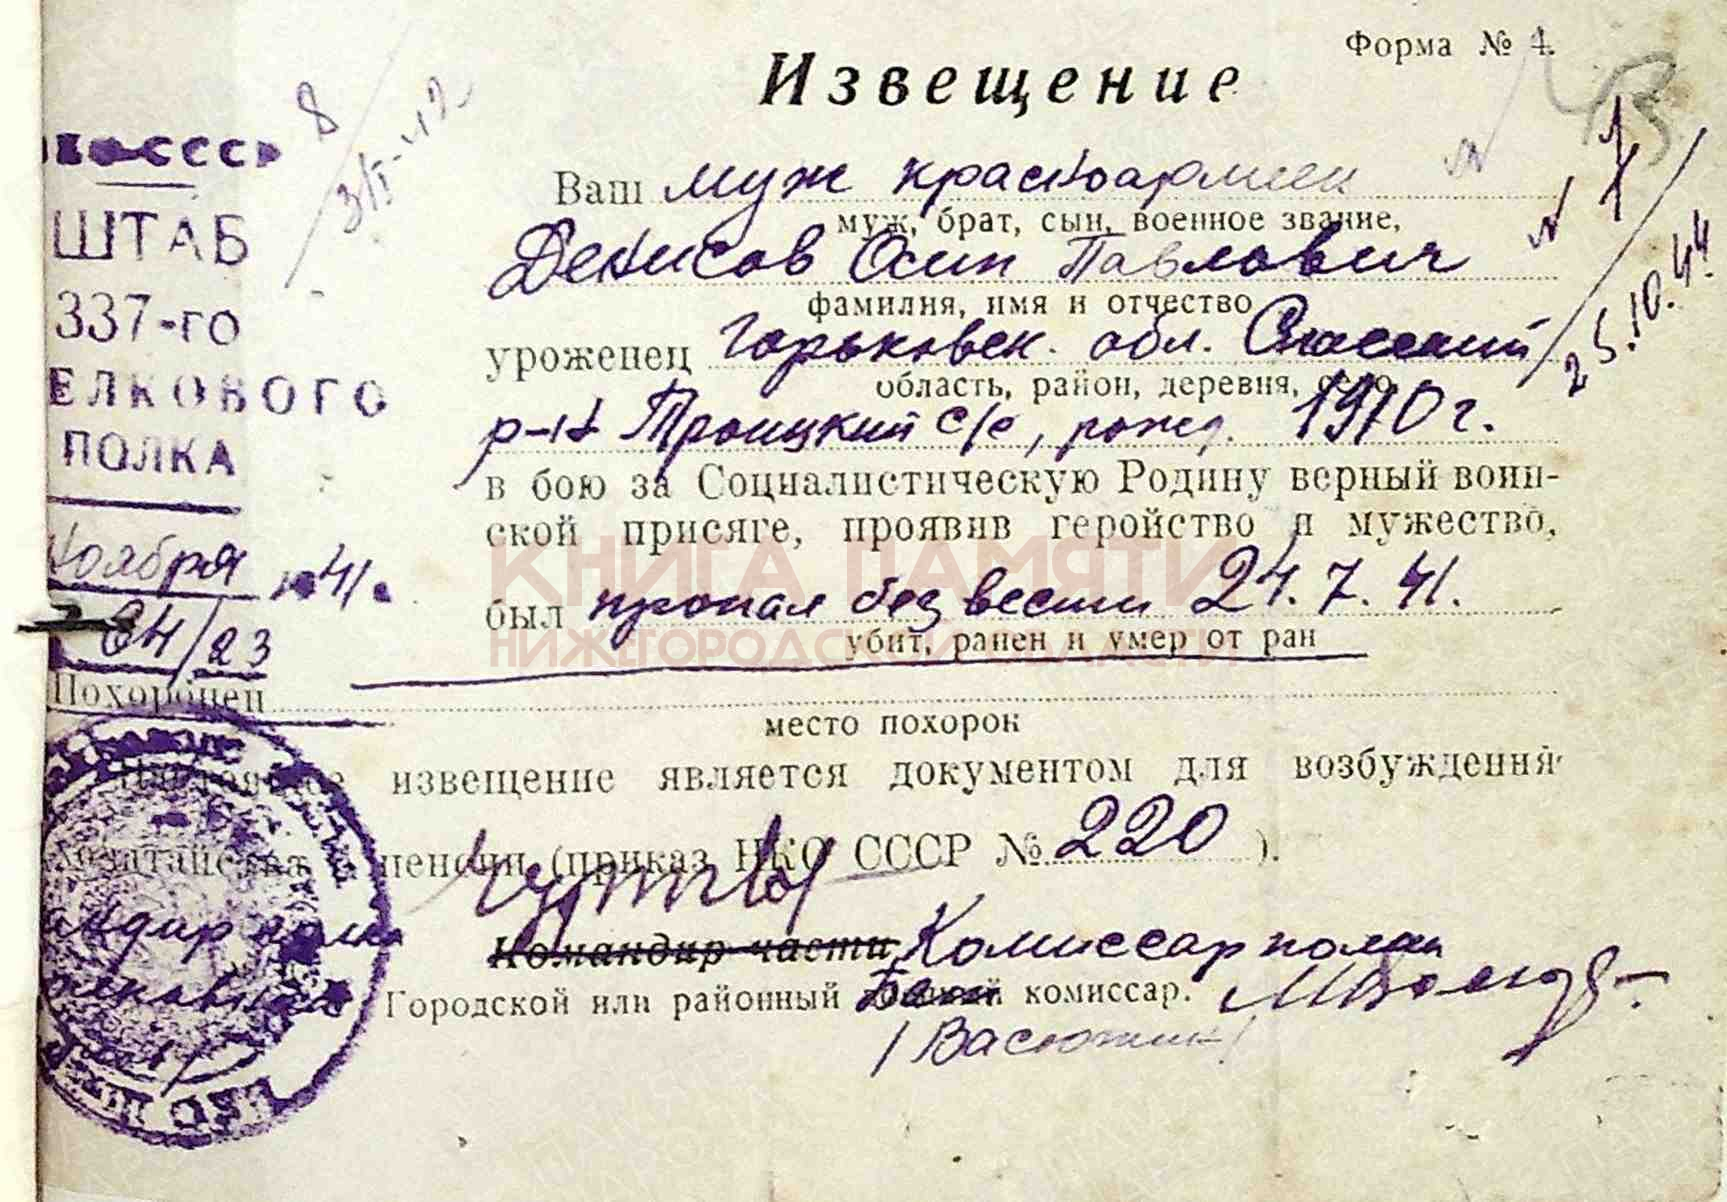 Форма № 4.
Извещение
8
3/I-42
ШТАБ
337-го
ЕЛКОВОГО
ПОЛКА
Ноября 1941г.
04/23
Ваш муж красноармеец
муж, брат, сын, военное звание,
Денисов Осип Павлович
фамилия, имя и отчество
уроженец Горьковск. обл. Спасский
область, район, деревня, село
р-н Троицкий с/с, рожд. 1910 г.
25.10.44
в бою за Социалистическую Родину верный воин-
ской присяге, проявив геройство и мужество,
КНИГА ПАМЯТИ
был пропал без вести 24.7.41.
НИЖЕГОРОДСКОЙ ОБЛАСТИ
убит, ранен и умер от ран
Похоронен
место похорон
Настоящее извещение является документом для возбуждения
ходатайства о пенсии (приказ НКО СССР № 220 ).
Командир части Комиссар полка
Городской или районный комиссар.